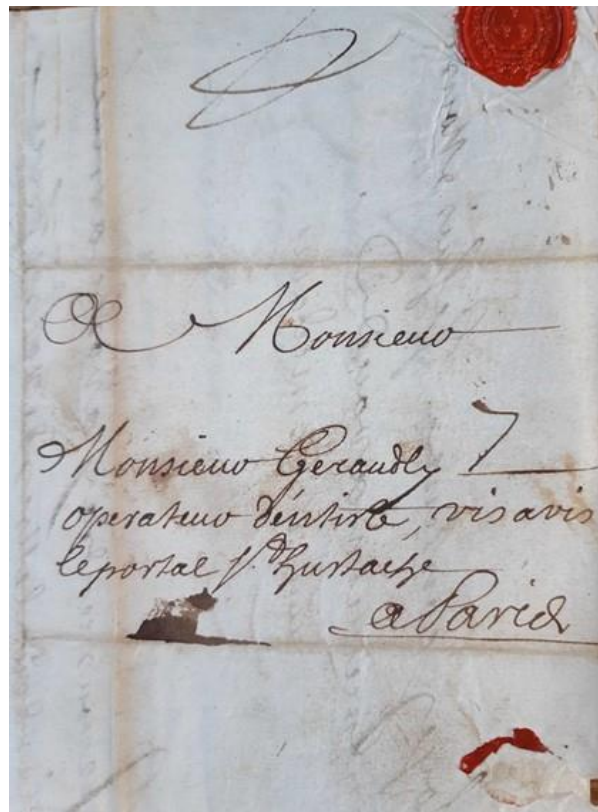 A Monsieur
Monsieur Geraudly 7
operateur dentiste, vis avis
le portal St Eustache
a Paris